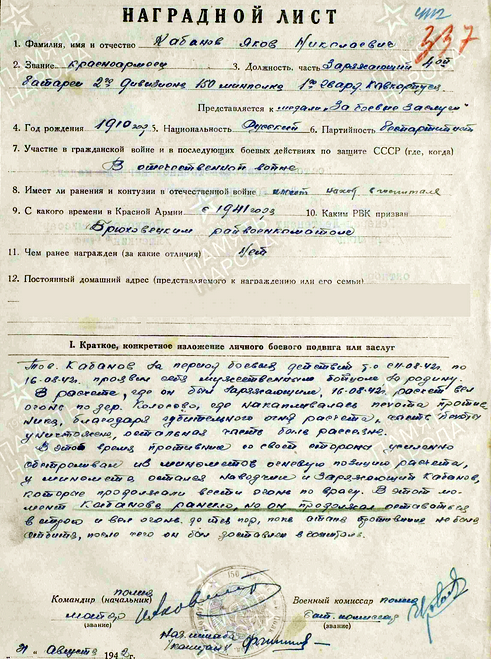 НАГРАДНОЙ ЛИСТ
337
1. Фамилия, имя и отчество Кабанов Яков Николаевич
2. Звание красноармеец 3. Должность, часть Заряжающий 4ой
батареи 2го дивизиона 150 минполка 1го гвард. Кавкорпуса
Представляется к медали „За боевые Заслуги“
4. Год рождения 1910 5. Национальность Русский 6. Партийность беспартийный
7. Участие в гражданской войне и в последующих боевых действиях по защите СССР (где, когда)
В отечественной войне
8. Имеет ли ранения и контузии в отечественной войне имеет наход. в госпитале
9. С какого времени в Красной Армии с 1941 года 10. Каким РВК призван
Брюховецким райвоенкоматом
11. Чем ранее награжден (за какие отличия) Нет
12. Постоянный домашний адрес (представляемого к награждению или его семьи)
I. Краткое, конкретное изложение личного боевого подвига или заслуг
Тов. Кабанов за период боевых действий с 11.08.42г. по
16.08.42г. проявил себя мужественным бойцом за родину.
В расчете, где он был заряжающим, 16.08.42г. расчет вел
огонь по дер. Колосово, где накапливалась пехота против
ника, благодаря убедительного огня расчета, часть пехоты
уничтожена, остальная часть была рассеяна.
В это время противник со своей стороны усиленно
обстреливал из минометов огневую позицию расчета,
у миномета остался наводчик и заряжающий Кабанов,
которые продолжали вести огонь по врагу. В этот мо-
мент Кабанова ранило, но он продолжал оставаться
в строю и вел огонь до тех пор, пока атака противника не была
отбита, после чего он был доставлен в госпиталь.
Командир (начальник) полка Военный комиссар полка
майор бат. комиссар
(звание) (звание)
Нач. штаба
капитан
31 „ Августа 1942 г.
ПАМЯТЬ НАРОДА